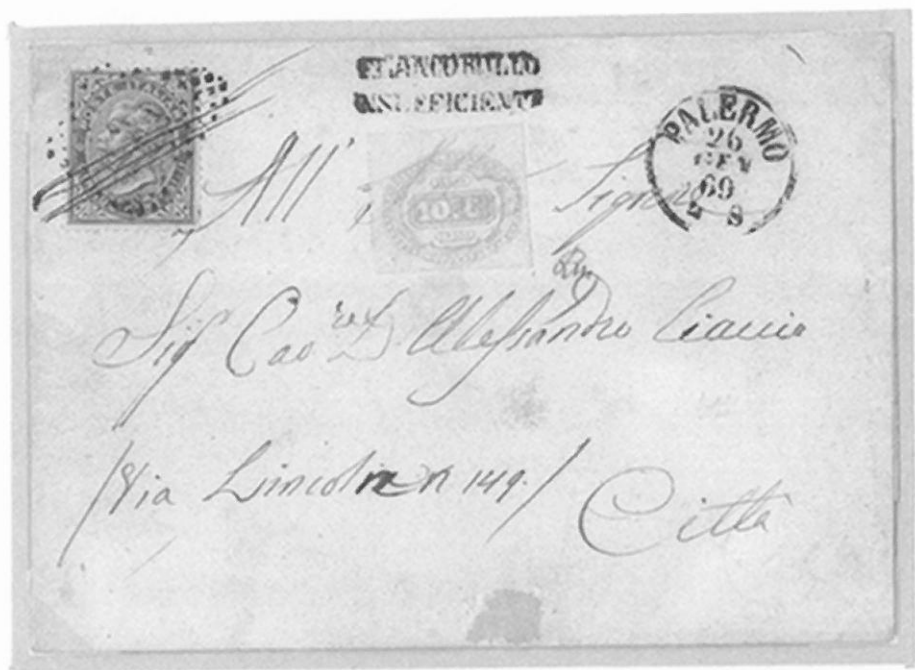 FRANCOBOLLO
INSUFFICIENTE
PALERMO
26
GEN
69
2 S
10 C
All' Signor
Sigr Cavre D. Alessandro Ciaccio
/Via Lincoln n 149./
Città